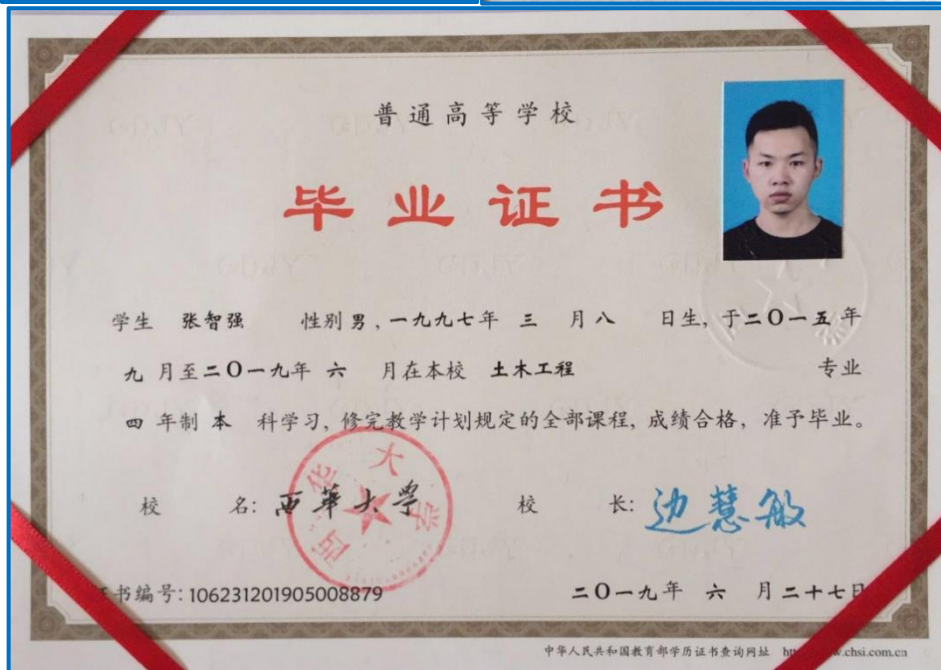 普通高等学校
毕业证书
学生 张智强 性别 男,一九九七年 三 月 八 日生,于二〇一五年
九 月至二〇一九年 六 月在本校 土木工程 专业
四 年制 本 科学习,修完教学计划规定的全部课程,成绩合格,准予毕业。
校 名: 西華大學 校 长: 边慧敏
西华大学
书编号:106231201905008879 二〇一九年 六 月二十七日
中华人民共和国教育部学历证书查询网址 .chsi.com.cn